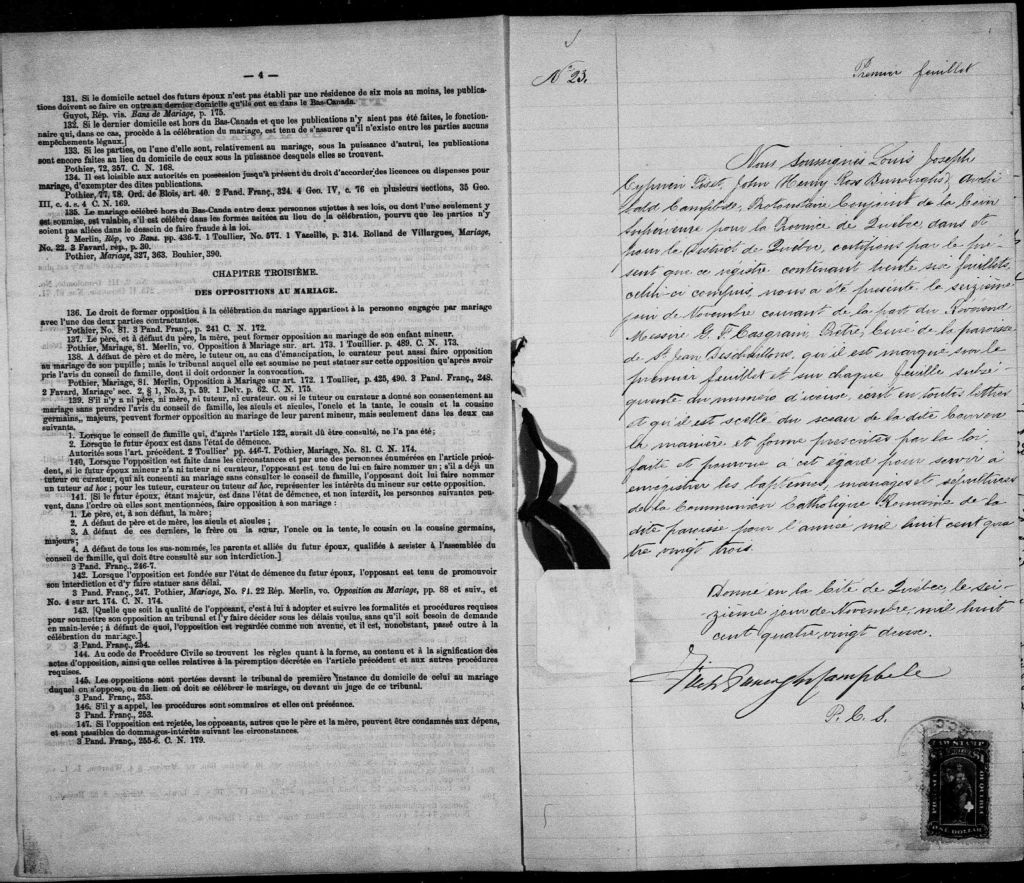 — 4 —
131. Si le domicile actuel des futurs époux n'est pas établi par une résidence de six mois au moins, les publica-
tions doivent se faire en outre au dernier domicile qu'ils ont eu dans le Bas-Canada.
Guyot, Rép. vis. Bans de Mariage, p. 175.
132. Si le dernier domicile est hors du Bas-Canada et que les publications n'y aient pas été faites, le fonction-
naire qui, dans ce cas, procède à la célébration du mariage, est tenu de s'assurer qu'il n'existe entre les parties aucuns
empêchements légaux.]
133. Si les parties, ou l'une d'elle sont, relativement au mariage, sous la puissance d'autrui, les publications
sont encore faites au lieu du domicile de ceux sous la puissance desquels elles se trouvent.
Pothier, 72, 357. C. N. 168.
134. Il est loisible aux autorités en possession jusqu'à présent du droit d'accorder des licences ou dispenses pour
mariage, d'exempter des dites publications.
Pothier, 77, 78. Ord. de Blois, art. 40. 2 Pand. Franç., 324. 4 Geo. IV, c. 76 en plusieurs sections, 35 Geo.
III, c. 4. s. 4 C. N. 169.
135. Le mariage célébré hors du Bas-Canda entre deux personnes sujettes à ses lois, ou dont l'une seulement y
est soumise, est valable, s'il est célébré dans les formes usitées au lieu de la célébration, pourvu que les parties n'y
soient pas allées dans le dessein de faire fraude à la loi.
2 Merlin, Rép, vo Bans. pp. 436-7. 1 Toullier, No. 577. 1 Vazeille, p. 314. Rolland de Villargues, Mariage,
No. 22. 3 Favard, rép., p. 30.
Pothier, Mariage, 327, 363. Bouhier, 390.
CHAPITRE TROISIÈME.
DES OPPOSITIONS AU MARIAGE.
136. Le droit de former opposition à la célébration du mariage appartient à la personne engagée par mariage
avec l'une des deux parties contractantes.
Pothier, No. 81. 3 Pand. Franç., p. 241 C. N. 172.
137. Le père, et à défaut du père, la mère, peut former opposition au mariage de son enfant mineur.
Pothier, Mariage, 81. Merlin, vo. Opposition à Mariage sur. art. 173. 1 Toullier. p. 489. C. N. 173.
138. A défaut de père et de mère, le tuteur ou, au cas d'émancipation, le curateur peut aussi faire opposition
au mariage de son pupille; mais le tribunal auquel elle est soumise ne peut statuer sur cette opposition qu'après avoir
pris l'avis du conseil de famille, dont il doit ordonner la convocation.
Pothier, Mariage, 81. Merlin, Opposition à Mariage sur art. 172. 1 Toullier, p. 425, 490. 3 Pand. Franç., 248.
2 Favard, Mariage' sec. 2, § 1, No. 3, p. 59. 1 Delv. p. 62. C. N. 175.
139. S'il n'y a ni père, ni mère, ni tuteur, ni curateur. ou si le tuteur ou curateur a donné son consentement au
mariage sans prendre l'avis du conseil de famille, les aieuls et aieules, l'oncle et la tante, le cousin et la cousine
germains,, majeurs, peuvent former opposition au mariage de leur parent mineur, mais seulement dans les deux cas
suivants.
1. Lorsque le conseil de famille qui, d'après l'article 122, aurait dû être consulté, ne l'a pas été;
2. Lorsque le futur époux est dans l'état de démence.
Autorités sous l'art. précédent. 2 Toullier' pp. 446-7. Pothier, Mariage, No. 81. C. N. 174.
140. Lorsque l'opposition est faite dans les circonstances et par une des personnes énumérées en l'article précé-
dent, si le futur époux mineur n'a ni tuteur ni curateur, l'opposant est tenu de lui en faire nommer un; s'il a déjà un
tuteur ou curateur, qui ait consenti au mariage sans consulter le conseil de famille, l'opposant doit lui faire nommer
un tuteur ad hoc; pour les tuteur, curateur ou tuteur ad hoc, représenter les intérêts du mineur sur cette opposition.
141. [Si le futur époux, étant majeur, est dans l'état de démence, et non interdit, les personnes suivantes peu-
vent, dans l'ordre où elles sont mentionnées, faire opposition à son mariage :
1. Le père, et, à son défaut, la mère;
2. A défaut de père et de mère, les aieuls et aieules;
3. A défaut de ces derniers, le frère ou la sœur, l'oncle ou la tante, le cousin ou la cousine germains,
majeurs;
4. A défaut de tous les sus-nommés, les parents et alliés du futur époux, qualifiés à assister à l'assemblée du
conseil de famille, qui doit être consulté sur son interdiction.]
3 Pand. Franç., 246-7.
142. Lorsque l'opposition est fondée sur l'état de démence du futur époux, l'opposant est tenu de promouvoir
son interdiction et d'y faire statuer sans délai.
3 Pand. Franç., 247. Pothier, Mariage, No. 81. 22 Rép. Merlin, vo. Opposition au Mariage, pp. 88 et suiv., et
No. 4 sur art. 174. C. N. 174.
143. [Quelle que soit la qualité de l'opposant, c'est à lui à adopter et suivre les formalités et procédures requises
pour soumettre son opposition au tribunal et l'y faire décider sous les délais voulus, sans qu'il soit besoin de demande
en main-levée; à défaut de quoi, l'opposition est regardée comme non avenue, et il est, nonobstant, passé outre à la
célébration du mariage.]
3 Pand. Franç., 254.
144. Au code de Procédure Civile se trouvent les règles quant à la forme, au contenu et à la signification des
actes d'opposition, ainsi que celles relatives à la péremption décrétée en l'article précédent et aux autres procédures
requises.
145. Les oppositions sont portées devant le tribunal de première instance du domicile de celui au mariage
duquel on s'oppose, ou du lieu où doit se célébrer le mariage, ou devant un juge de ce tribunal.
3 Pand. Franç., 253.
146. S'il y a appel, les procédures sont sommaires et elles ont préséance.
3 Pand. Franç., 253.
147. Si l'opposition est rejetée, les opposants, autres que le père et la mère, peuvent être condamnés aux dépens,
et sont passibles de dommages-intérêts suivant les circonstances.
3 Pand. Franç., 255-6. C. N. 179.
No 23.
Premier feuillet
Nous soussignés Louis Joseph
Cyprien Fiset, John Henry Ross Burroughs, Archi
bald Campbell, Protonotaire Conjoint de la Cour
Supérieure pour la Province de Québec, dans et
pour le District de Québec, certifions par le pré-
sent que ce régistre contenant trente six feuillets,
celui-ci compris, nous a été présenté le seizième
jour de Novembre courant de la part du Révérend
Messire G. F. Casgrain, Prêtre, Curé de la paroisse
de St Jean Deschaillons, qu'il est marqué sur le
premier feuillet et sur chaque feuille subsé-
quente du numéro d'icelui, écrit en toutes lettres
et qu'il est scellé du sceau de la dite Cour en
la manière et forme prescrites par la loi
faite et pourvue à cet égard pour servir à
enregistrer les baptêmes, mariages et sépultures
de la Communion Catholique Romaine de la
dite paroisse pour l'année mil huit cent qua
tre vingt trois.
Donné en la Cité de Québec, le sei-
zième jour de Novembre, mil huit
cent quatre vingt deux.
Fiset Burroughs Campbell
P. C. S.
LAW STAMP
QUEBEC
ONE DOLLAR